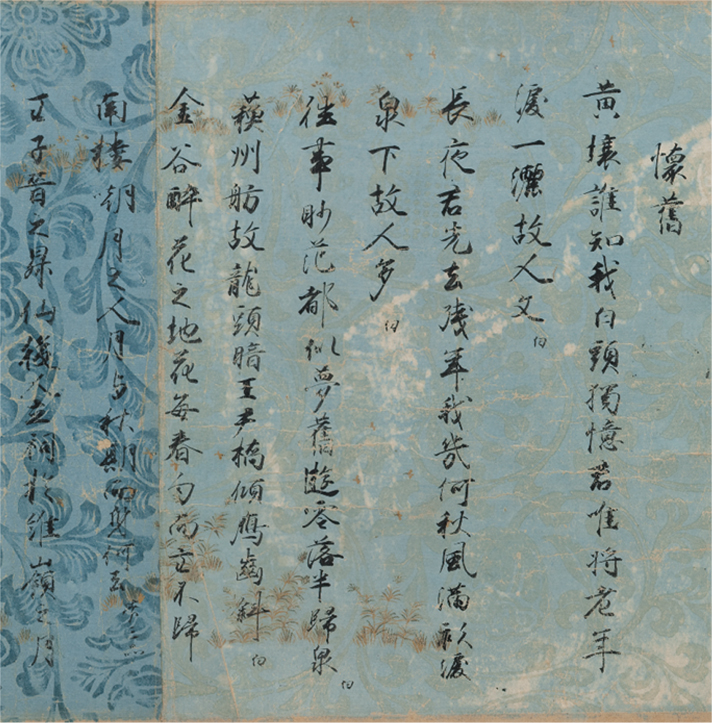 懷舊
黄壤誰知我白頭獨憶君唯將老年
淚一灑故人文 白
長夜君先去殘年我幾何秋風滿衫淚
泉下故人多 白
往事眇茫都似夢舊遊零落半歸泉 白
蘓州舫故龍頭暗王尹橋傾鴈齒斜 白
金谷醉花之地花每春匂而主不歸
南樓嘲月之人月与秋期而身何去 菅三
王子晉之昇仙後人立祠於緱嶺之月